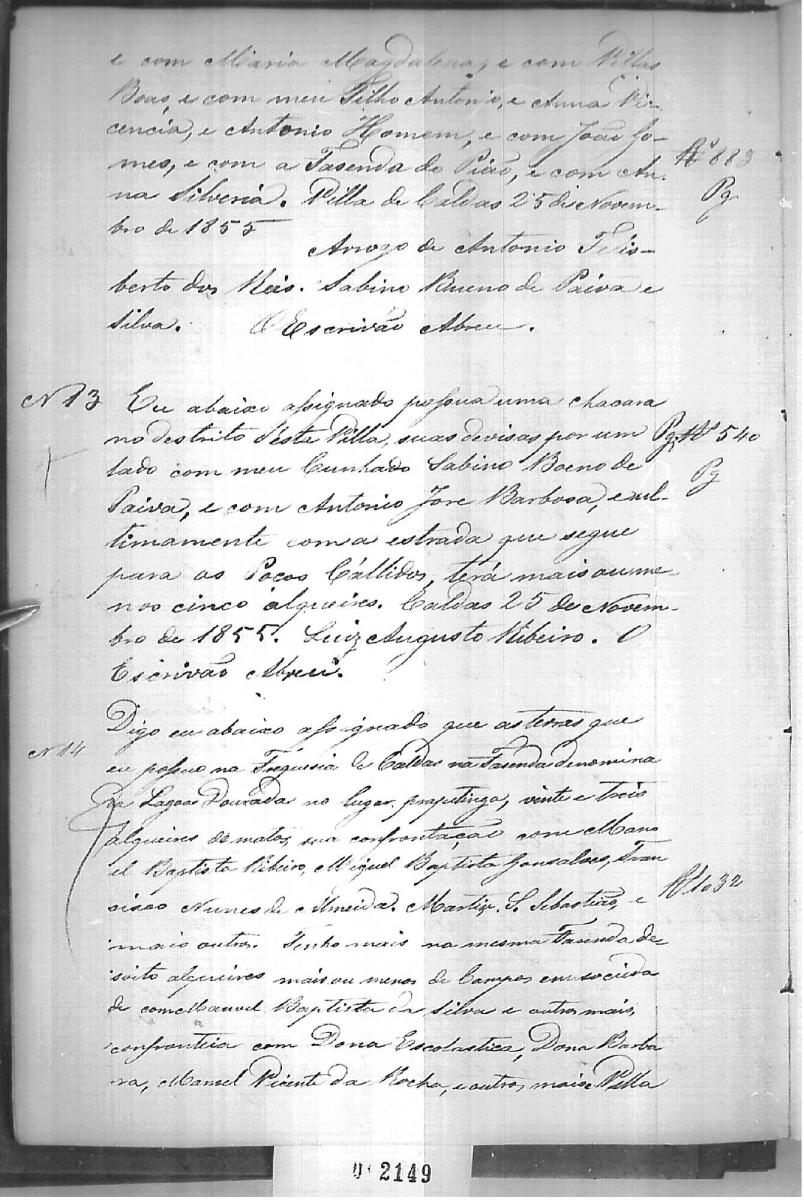 e com Maria Magdalena, e com Villas
Boas, e com meu Filho Antonio, e Anna Vi-
cencia, e Antonio Homem, e com João Go-
mes, e com a Fasenda do Pião, e com An-
na Silveria. Villa de Caldas 25 de Novem-
bro de 1855
Nº 883
Pg
Arrogo de Antonio Felis-
berto dos Reis. Sabino Bueno de Paiva e
Silva. O Escrivão Abreu.
N 13 Eu abaixo assignado possua uma chacara
no destrito désta Villa, suas devisas por um
lado com meu Cunhado Sabino Boeno de
Paiva, e com Antonio Jose Barbosa, e ul-
timamente com a estrada que segue
para os Poços Cálidos, terá mais ou me-
nos cinco alqueires. Caldas 25 de Novem-
bro de 1855. Luiz Augusto Ribeiro. O
Escrivão Abreu.
Pg Nº 540
Pg
N 14
Digo eu abaixo assignado que as terras que
eu possuo na Freguesia de Caldas na Fasenda denomina
da Lagoa Dourada no lugar, vinte e treis
alqueires de matos, sua confrontação com Mano
el Baptista Ribeiro, Miguel Baptista Gonsalves, Fran
cisco Nunes de Almeida. Martir S. Sebastião, e
mais outros. Tenho mais na mesma Fasenda de-
soito alqueires mais ou menos de Campos em socieda
de com Manoel Baptista da Silva e outros mais,
confronteia com Dona Escolastica, Dona Barba
ra, Manoel Vicente da Rocha, e outros mais. Villa
Nº 1032
2149